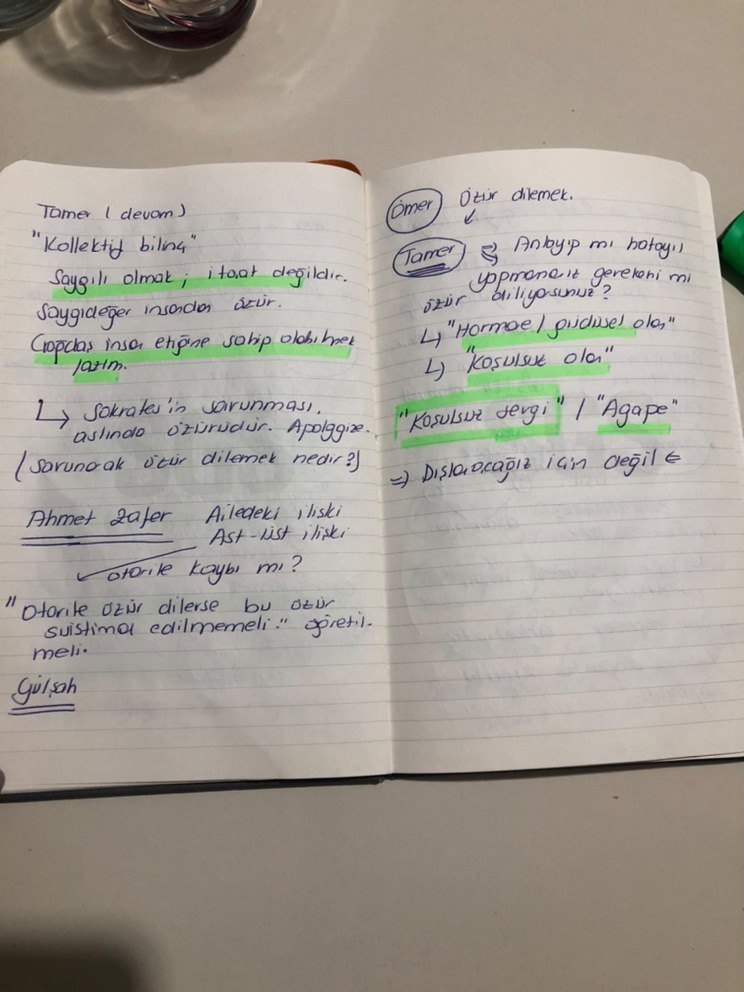 Tamer (devam)
"Kollektif bilinç"
Saygılı olmak; itaat değildir.
Saygıdeğer insandan özür.
Çağdaş insan etiğine sahip olabilmek
lazım.
↳ Sokrates'in savunması.
aslında özürüdür. Apologgize.
(Savunarak özür dilemek nedir?)
Ahmet Zafer Ailedeki ilişki
Ast-üst ilişki
otorite kaybı mı?
"Otorite özür dilerse bu özür
suistimal edilmemeli." öğretil-
meli.
Gülşah
Ömer Özür dilemek.
Tamer => Anlayıp mı hatayı
yapmanız gerekeni mi
özür diliyosunuz?
↳ "Hormae / güdüsel olan"
↳ "Koşulsuz olan"
"Koşulsuz sevgi" / "Agape"
=> Dışlanacağız için değil <=